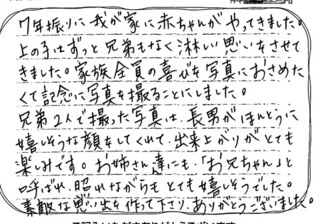 7年振りに我が家に赤ちゃんがやってきました。
上の子はずっと兄弟もなく淋しい思いをさせて
きました。家族全員の喜びを写真におさめた
くて記念に写真を撮ることにしました。
兄弟2人で撮った写真は、長男がほんとうに
嬉しそうな顔をしてくれて、出来上がりがとても
楽しみです。お姉さん達にも、「お兄ちゃん」と
呼ばれ、照れながらもとても嬉しそうでした。
素敵な思い出を作って下さり、ありがとうございました。